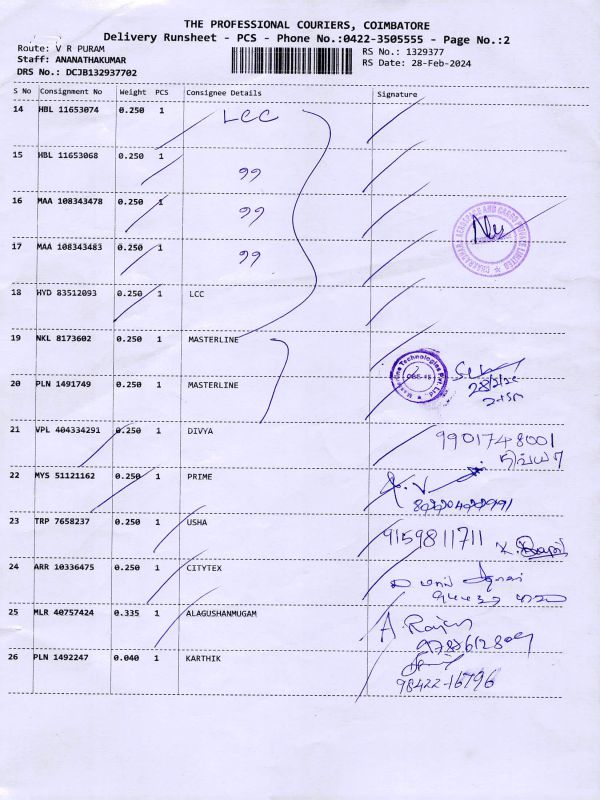 THE PROFESSIONAL COURIERS, COIMBATORE
Delivery Runsheet - PCS - Phone No.:0422-3505555 - Page No.:2
Route: V R PURAM
RS No.: 1329377
Staff: ANANATHAKUMAR
RS Date: 28-Feb-2024
DRS No.: DCJB132937702
S No Consignment No Weight PCS Consignee Details Signature
14 HBL 11653074 0.250 1 LCC
15 HBL 11653068 0.250 1 "
16 MAA 108343478 0.250 1 "
17 MAA 108343483 0.250 1 "
18 HYD 83512093 0.250 1 LCC
19 NKL 8173602 0.250 1 MASTERLINE
20 PLN 1491749 0.250 1 MASTERLINE
21 VPL 404334291 0.250 1 DIVYA 9901748001
22 MYS 51121162 0.250 1 PRIME
23 TRP 7658237 0.250 1 USHA 9159811711
24 ARR 10336475 0.250 1 CITYTEX
25 MLR 40757424 0.335 1 ALAGUSHANMUGAM A. Rajan
26 PLN 1492247 0.040 1 KARTHIK
98422-16796